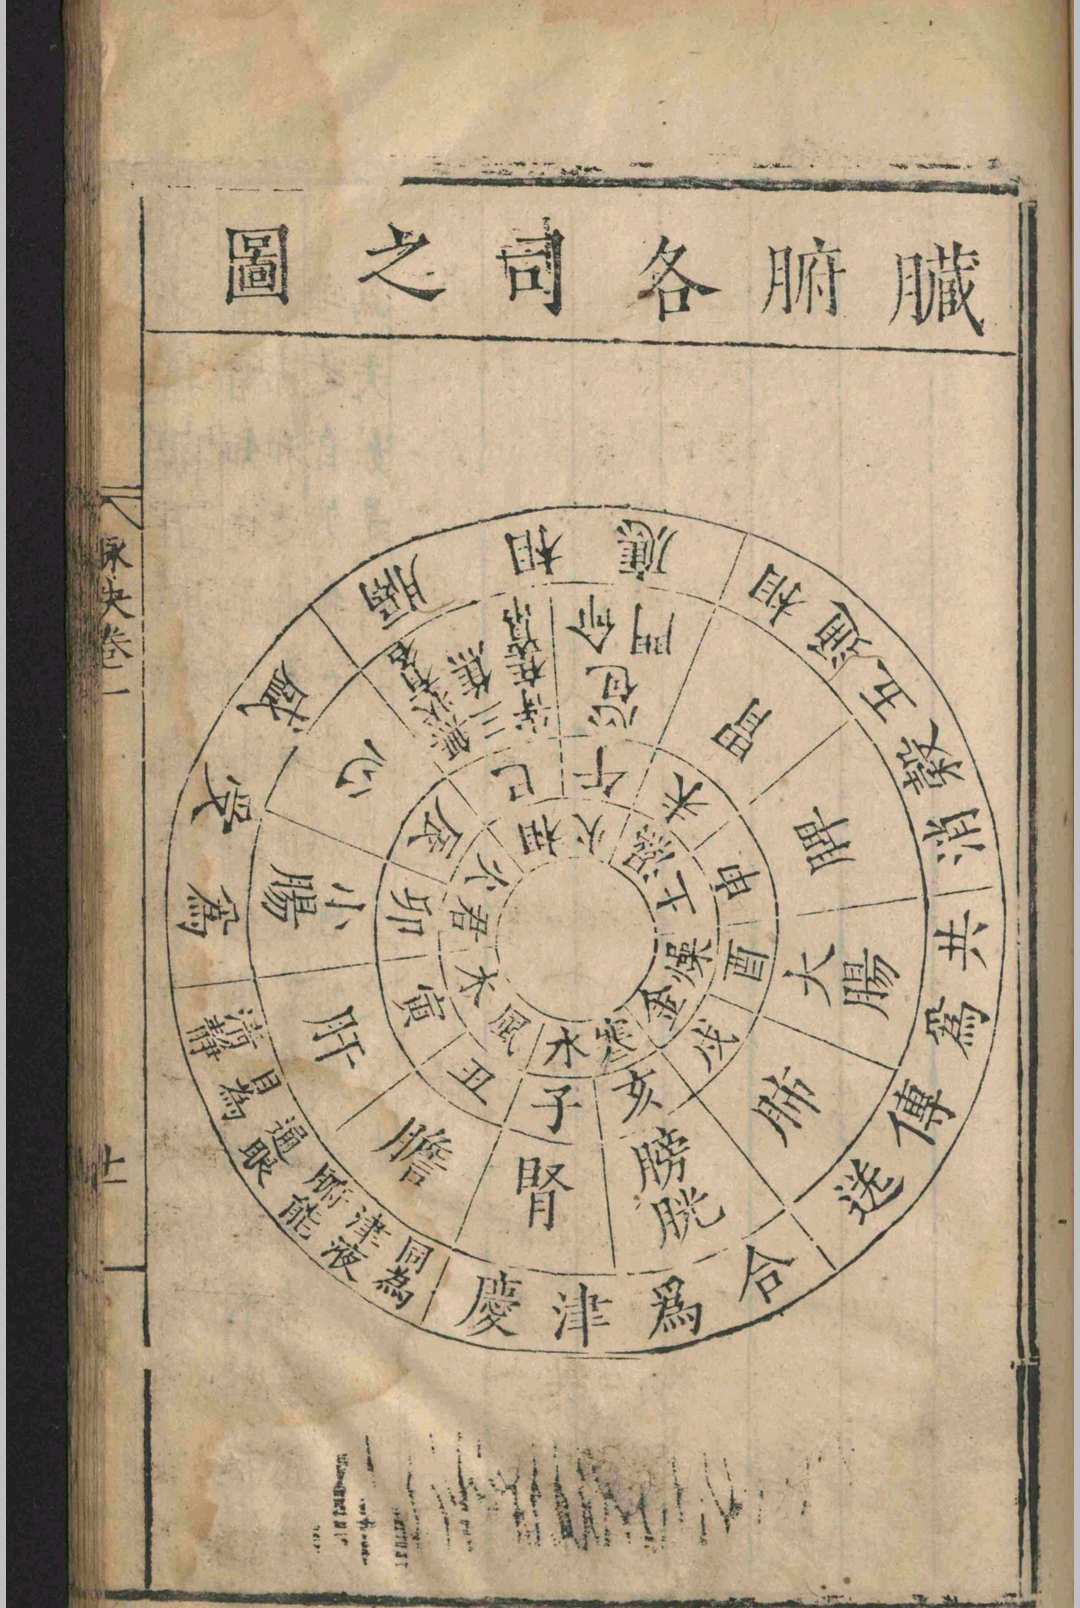 臟腑各司之圖
脉夬卷一
相火
濕土
燥金
寒水
風木
君火
午
未
申
酉
戌
亥
子
丑
寅
卯
辰
巳
心包
命門
胃
脾
大腸
肺
膀胱
腎
膽
肝
小腸
心
三焦
無狀有名
膈相應
相通五穀消
共為傳送
合為津慶
同為津液
腑能通眼
目為清靜
為受盛